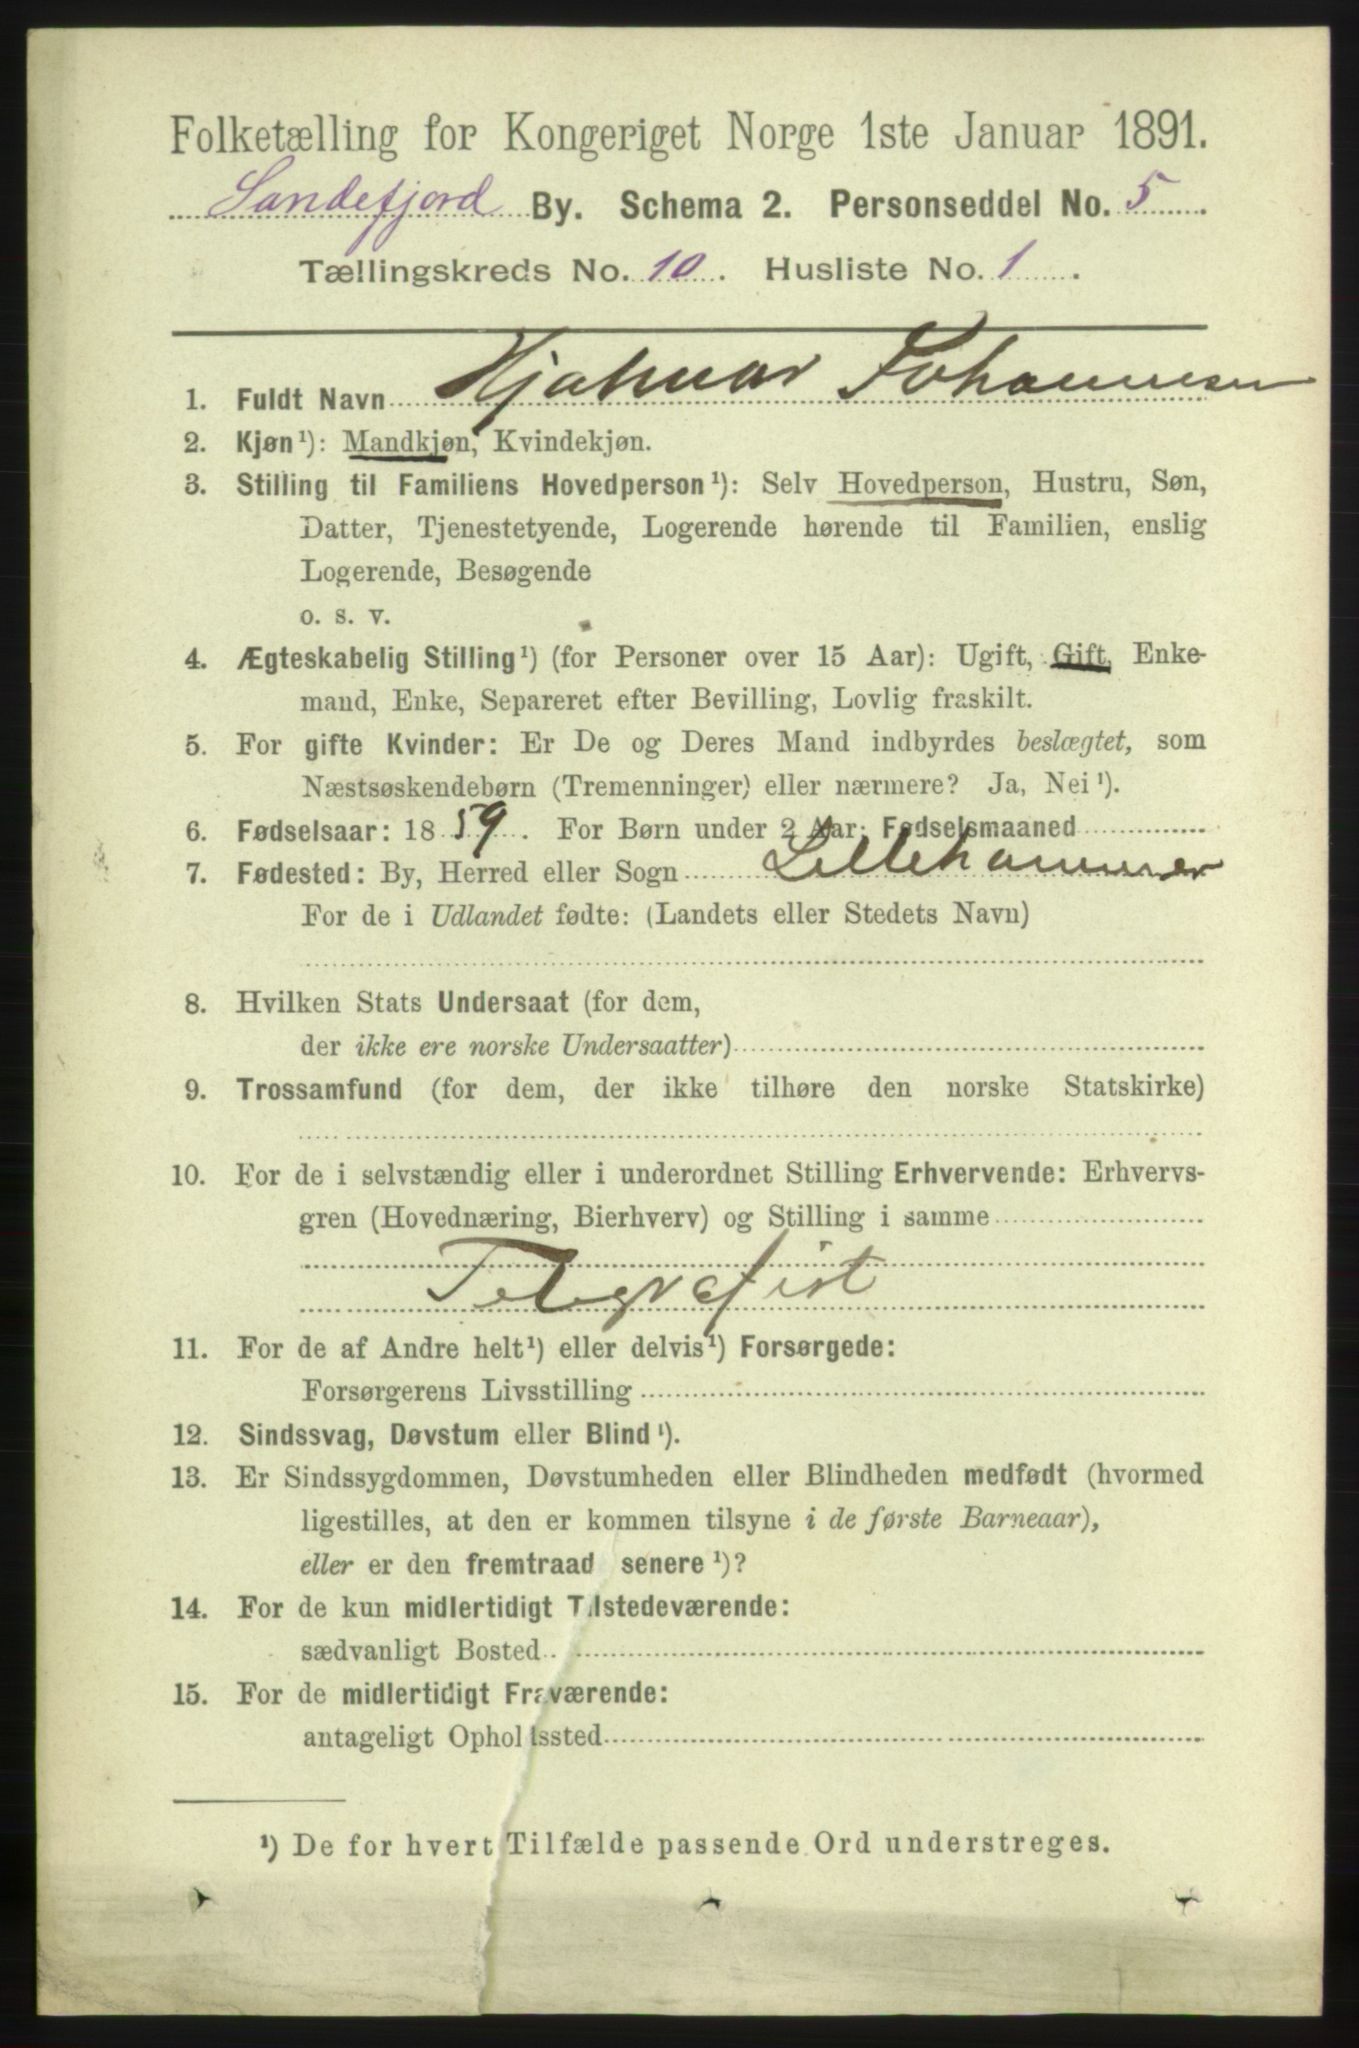 Folketælling for Kongeriget Norge 1ste Januar 1891.
Sandefjord By. Schema 2. Personseddel No. 5
Tællingskreds No. 10. Husliste No. 1.
1. Fuldt Navn Hjalmar Johannesen
2. Kjøn¹): Mandkjøn, Kvindekjøn.
3. Stilling til Familiens Hovedperson¹): Selv Hovedperson, Hustru, Søn,
Datter, Tjenestetyende, Logerende hørende til Familien, enslig
Logerende, Besøgende
o. s. v.
4. Ægteskabelig Stilling¹) (for Personer over 15 Aar): Ugift, Gift, Enke-
mand, Enke, Separeret efter Bevilling, Lovlig fraskilt.
5. For gifte Kvinder: Er De og Deres Mand indbyrdes beslægtet, som
Næstsøskendebørn (Tremenninger) eller nærmere? Ja, Nei¹).
6. Fødselsaar: 1859. For Børn under 2 Aar: Fødselsmaaned
7. Fødested: By, Herred eller Sogn Lillehammer
For de i Udlandet fødte: (Landets eller Stedets Navn)
8. Hvilken Stats Undersaat (for dem,
der ikke ere norske Undersaatter)
9. Trossamfund (for dem, der ikke tilhøre den norske Statskirke)
10. For de i selvstændig eller i underordnet Stilling Erhvervende: Erhvervs-
gren (Hovednæring, Bierhverv) og Stilling i samme
Telegrafist
11. For de af Andre helt¹) eller delvis¹) Forsørgede:
Forsørgerens Livsstilling
12. Sindssvag, Døvstum eller Blind¹).
13. Er Sindssygdommen, Døvstumheden eller Blindheden medfødt (hvormed
ligestilles, at den er kommen tilsyne i de første Barneaar),
eller er den fremtraad senere¹)?
14. For de kun midlertidigt Tilstedeværende:
sædvanligt Bosted
15. For de midlertidigt Fraværende:
antageligt Opholdssted
¹) De for hvert Tilfælde passende Ord understreges.